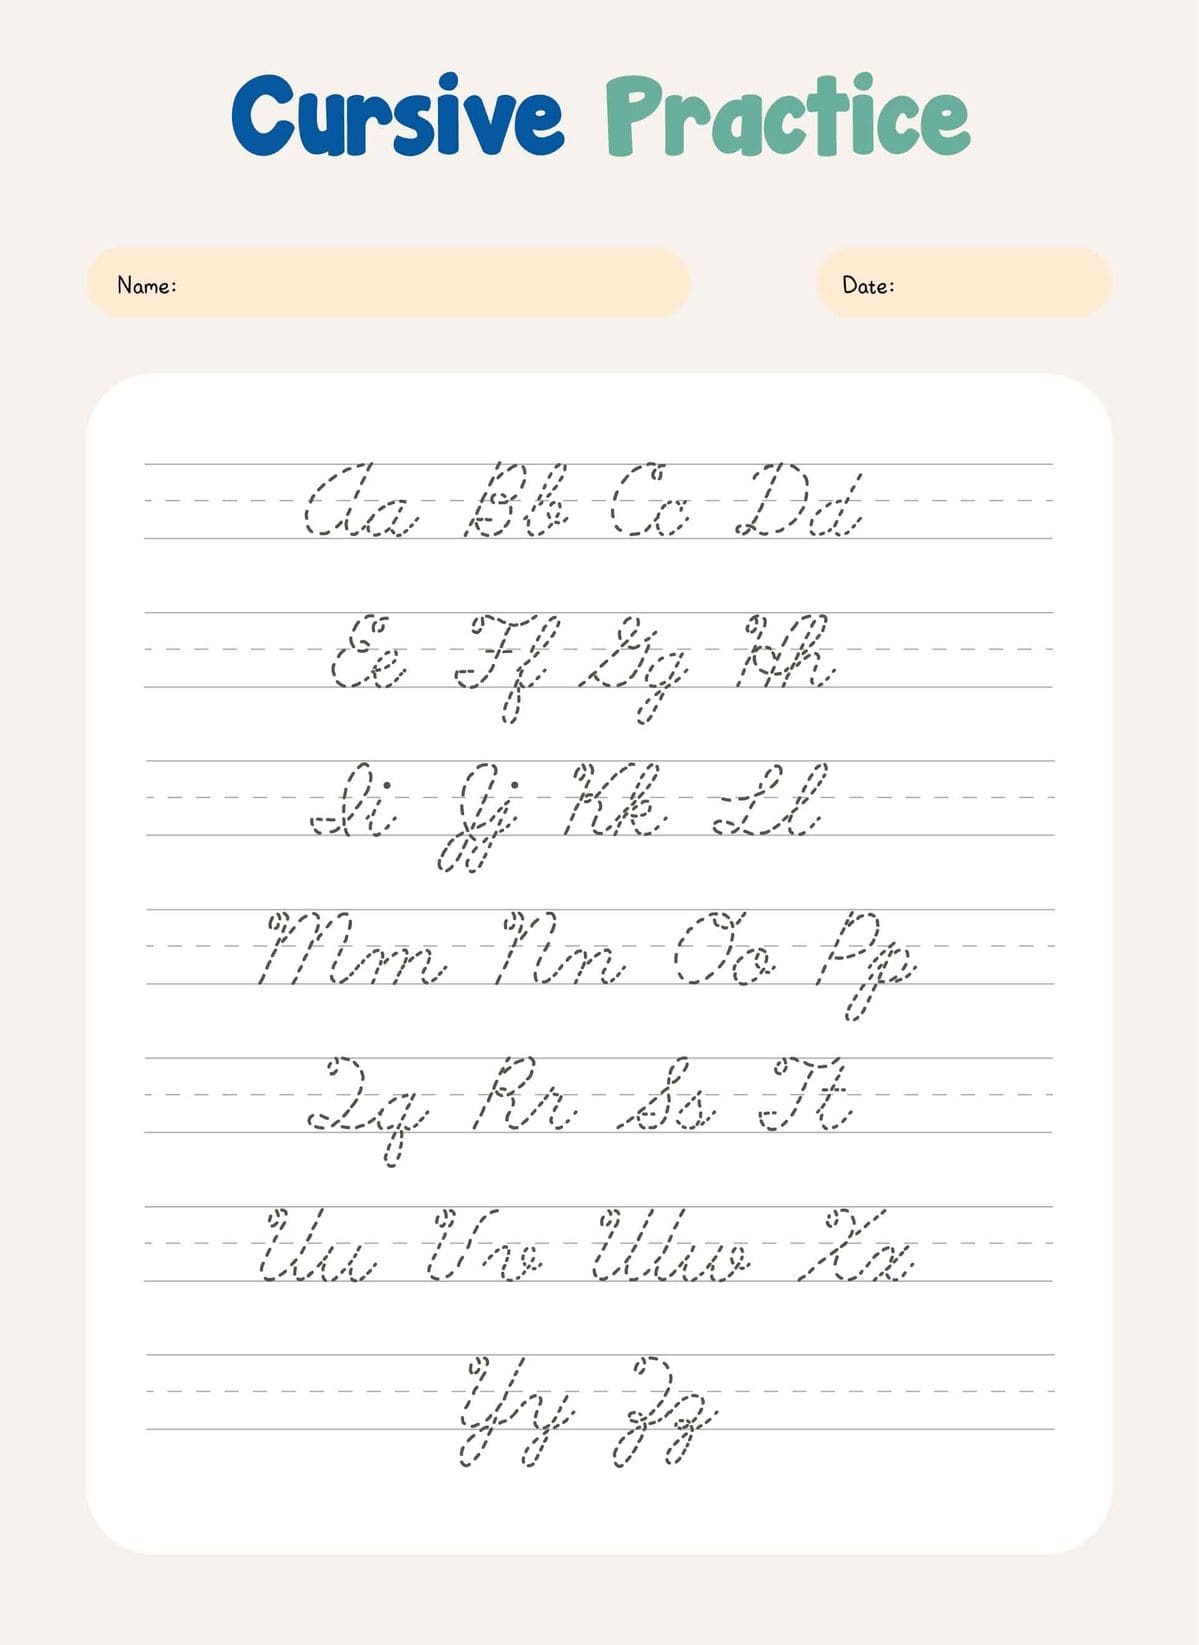 Cursive Practice
Name: Date:
Aa Bb Cc Dd
Ee Ff Gg Hh
Ii Jj Kk Ll
Mm Nn Oo Pp
Qq Rr Ss Tt
Uu Vv Ww Xx
Yy Zz